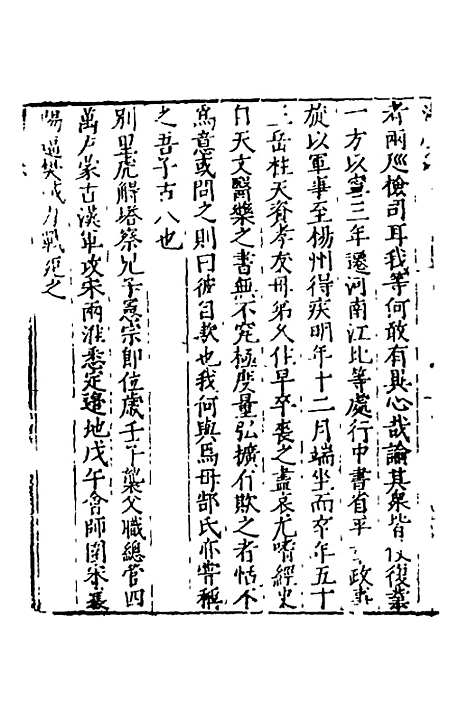 者兩廵檢司耳我等何敢有異心哉諭其衆皆復業
一方以寧三年遷河南江北等處行中書省平政事
旋以軍事至楊州得疾明年十二月端坐而卒年五十
三岳柱天資孝友母弟久住早卒喪之盡哀尤嗜經史
自天文醫藥之書無不究極度量弘擴有欺之者恬不
爲意或問之則曰彼自欺也我何與焉母郜氏亦嘗稱
之吾子古人也
別里虎觧塔察兒子憲宗即位歲壬子襲父職總管四
萬户蒙古漢軍攻宋兩淮悉定邉地戊午會師圍宋襄
陽逼樊城力戰死之